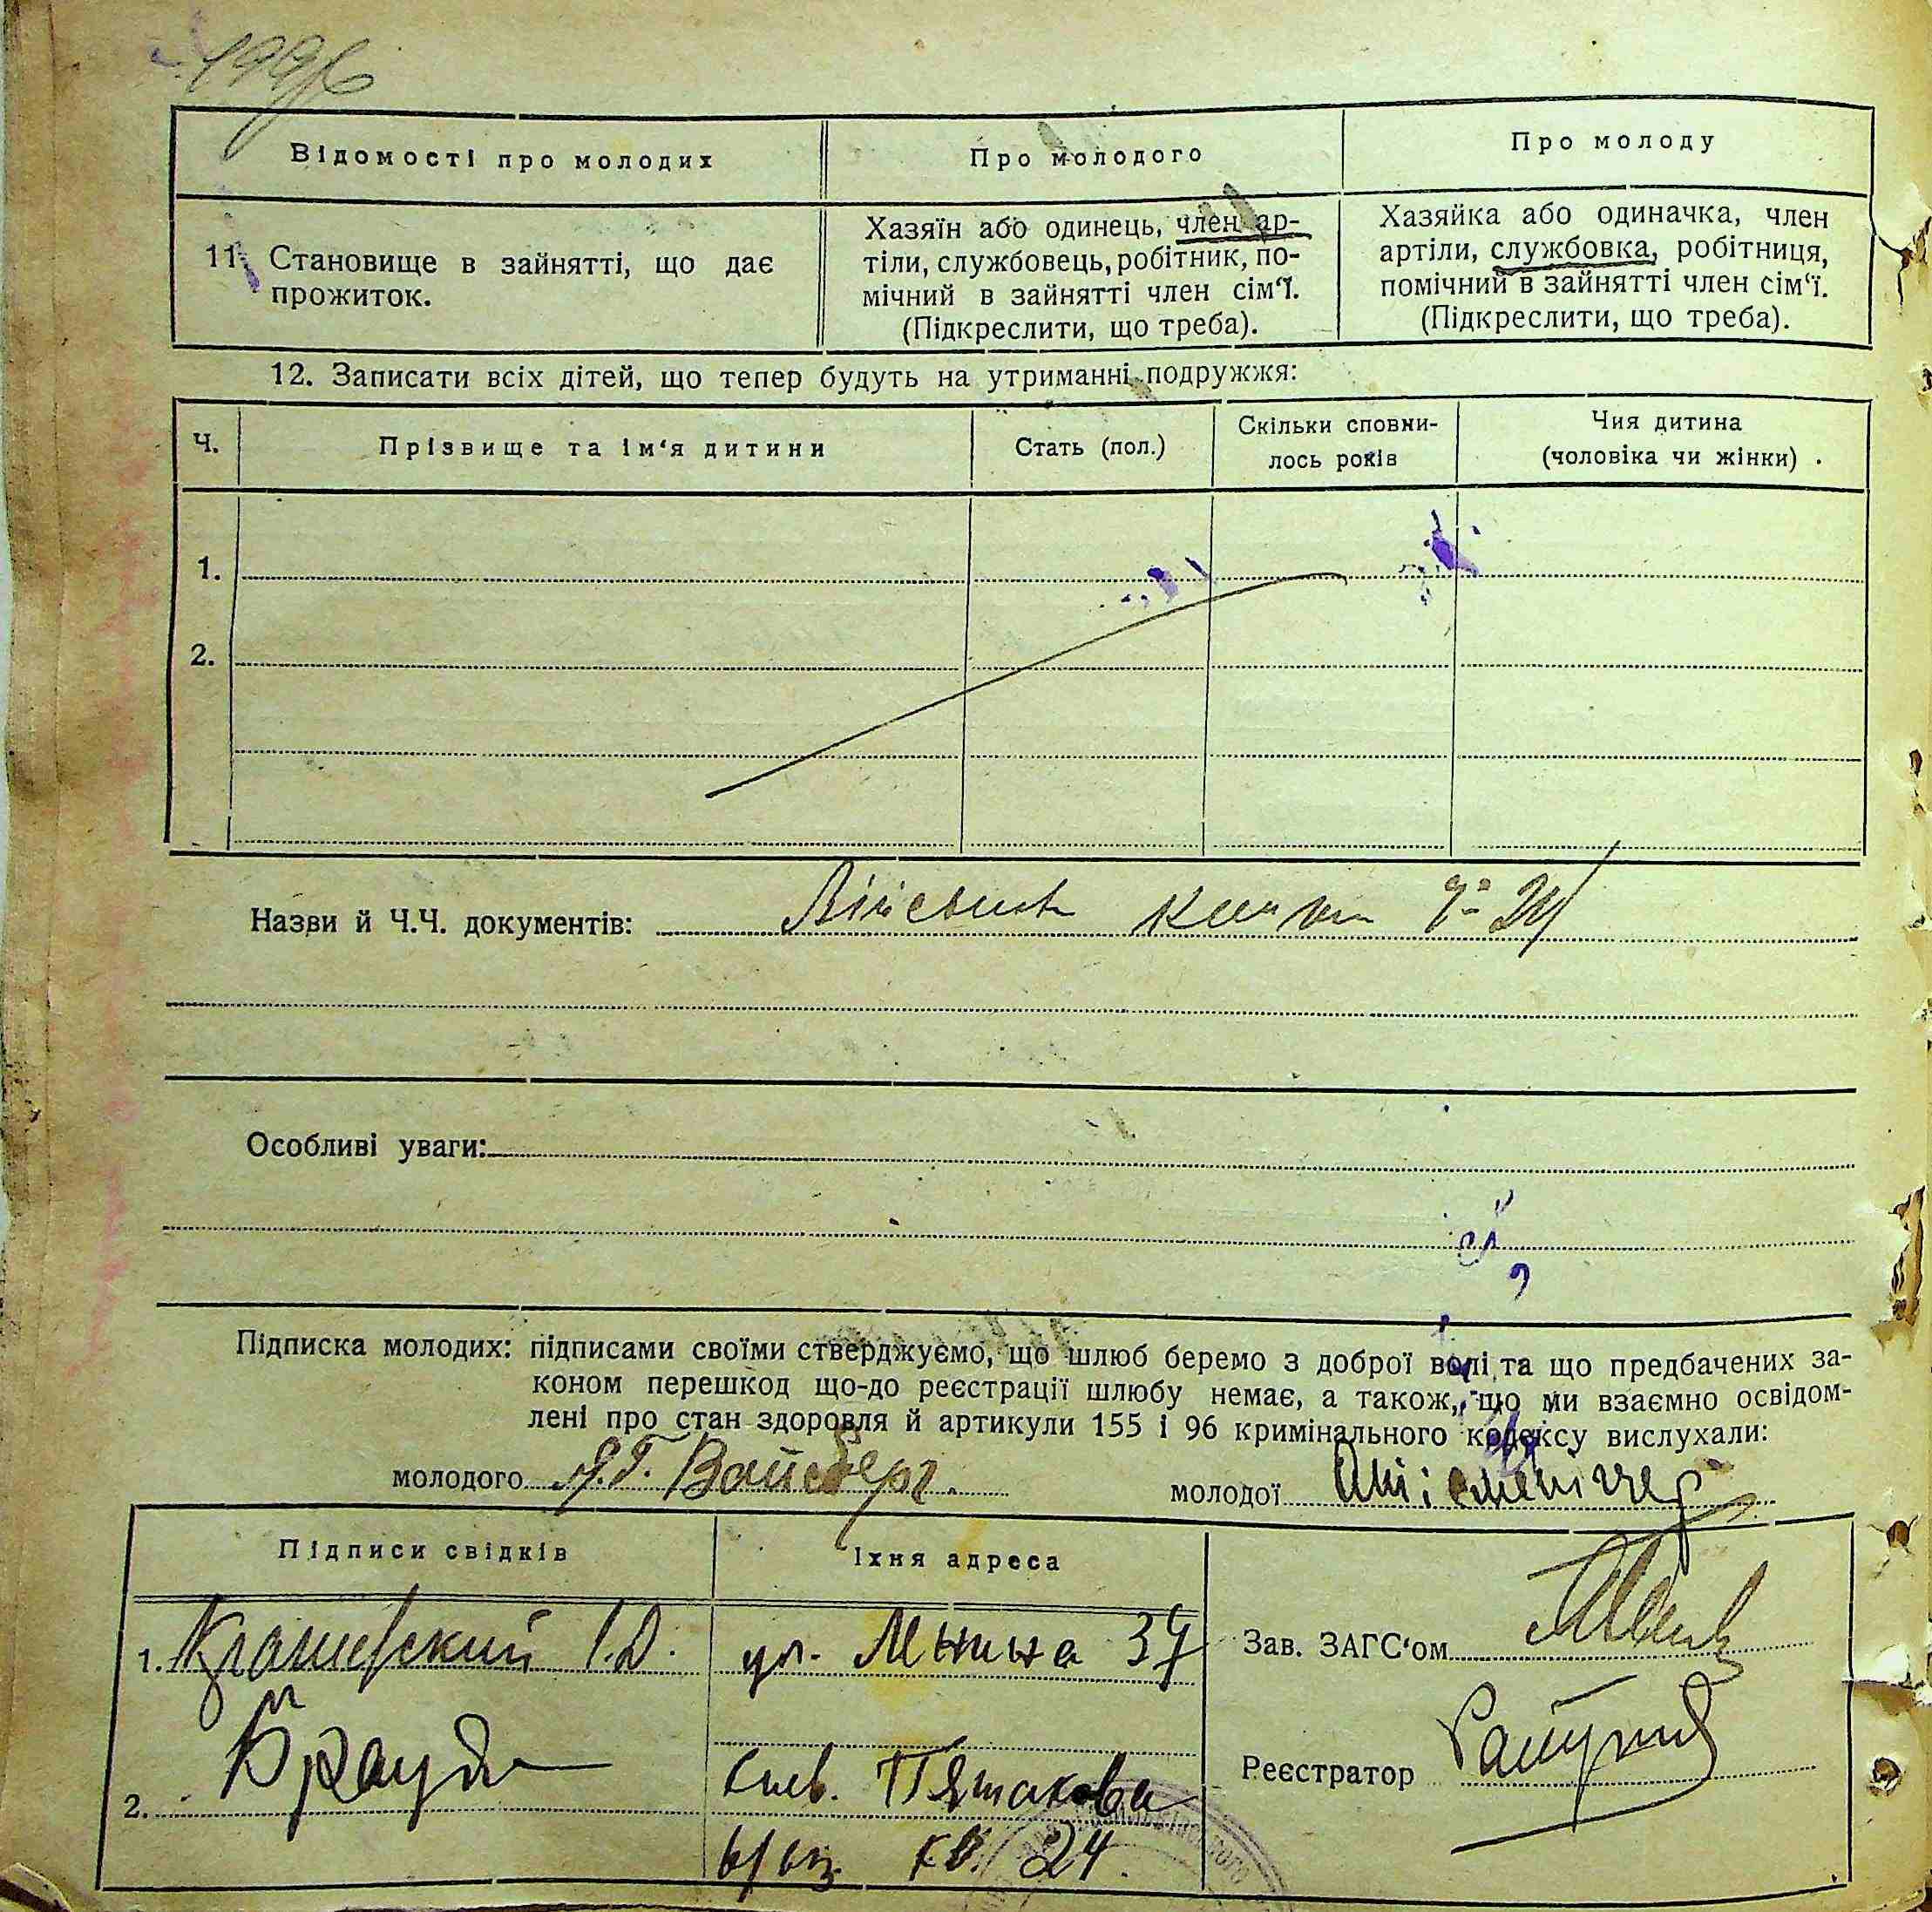 1996
Відомості про молодих
Про молодого
Про молоду
11. Становище в зайнятті, що дає
прожиток.
Хазяїн або одинець, член ар-
тіли, службовець, робітник, по-
мічний в зайнятті член сім'ї.
(Підкреслити, що треба).
Хазяйка або одиначка, член
артіли, службовка, робітниця,
помічний в зайнятті член сім'ї.
(Підкреслити, що треба).
12. Записати всіх дітей, що тепер будуть на утриманні подружжя:
Ч.
Прізвище та ім'я дитини
Стать (пол.)
Скільки сповни-
лось років
Чия дитина
(чоловіка чи жінки)
1.
2.
Назви й Ч.Ч. документів:
Особливі уваги:
Підписка молодих: підписами своїми стверджуємо, що шлюб беремо з доброї волі та що предбачених за-
коном перешкод що-до реєстрації шлюбу немає, а також, що ми взаємно освідом-
лені про стан здоровля й артикули 155 і 96 кримінального кодексу вислухали:
молодого Я.Г. Вайсберг.
молодої
Підписи свідків
Їхня адреса
1. І.Д.
ул. 37
Зав. ЗАГС'ом
2. Брауде
Киев. Пятакова
Реєстратор
кв. 24.